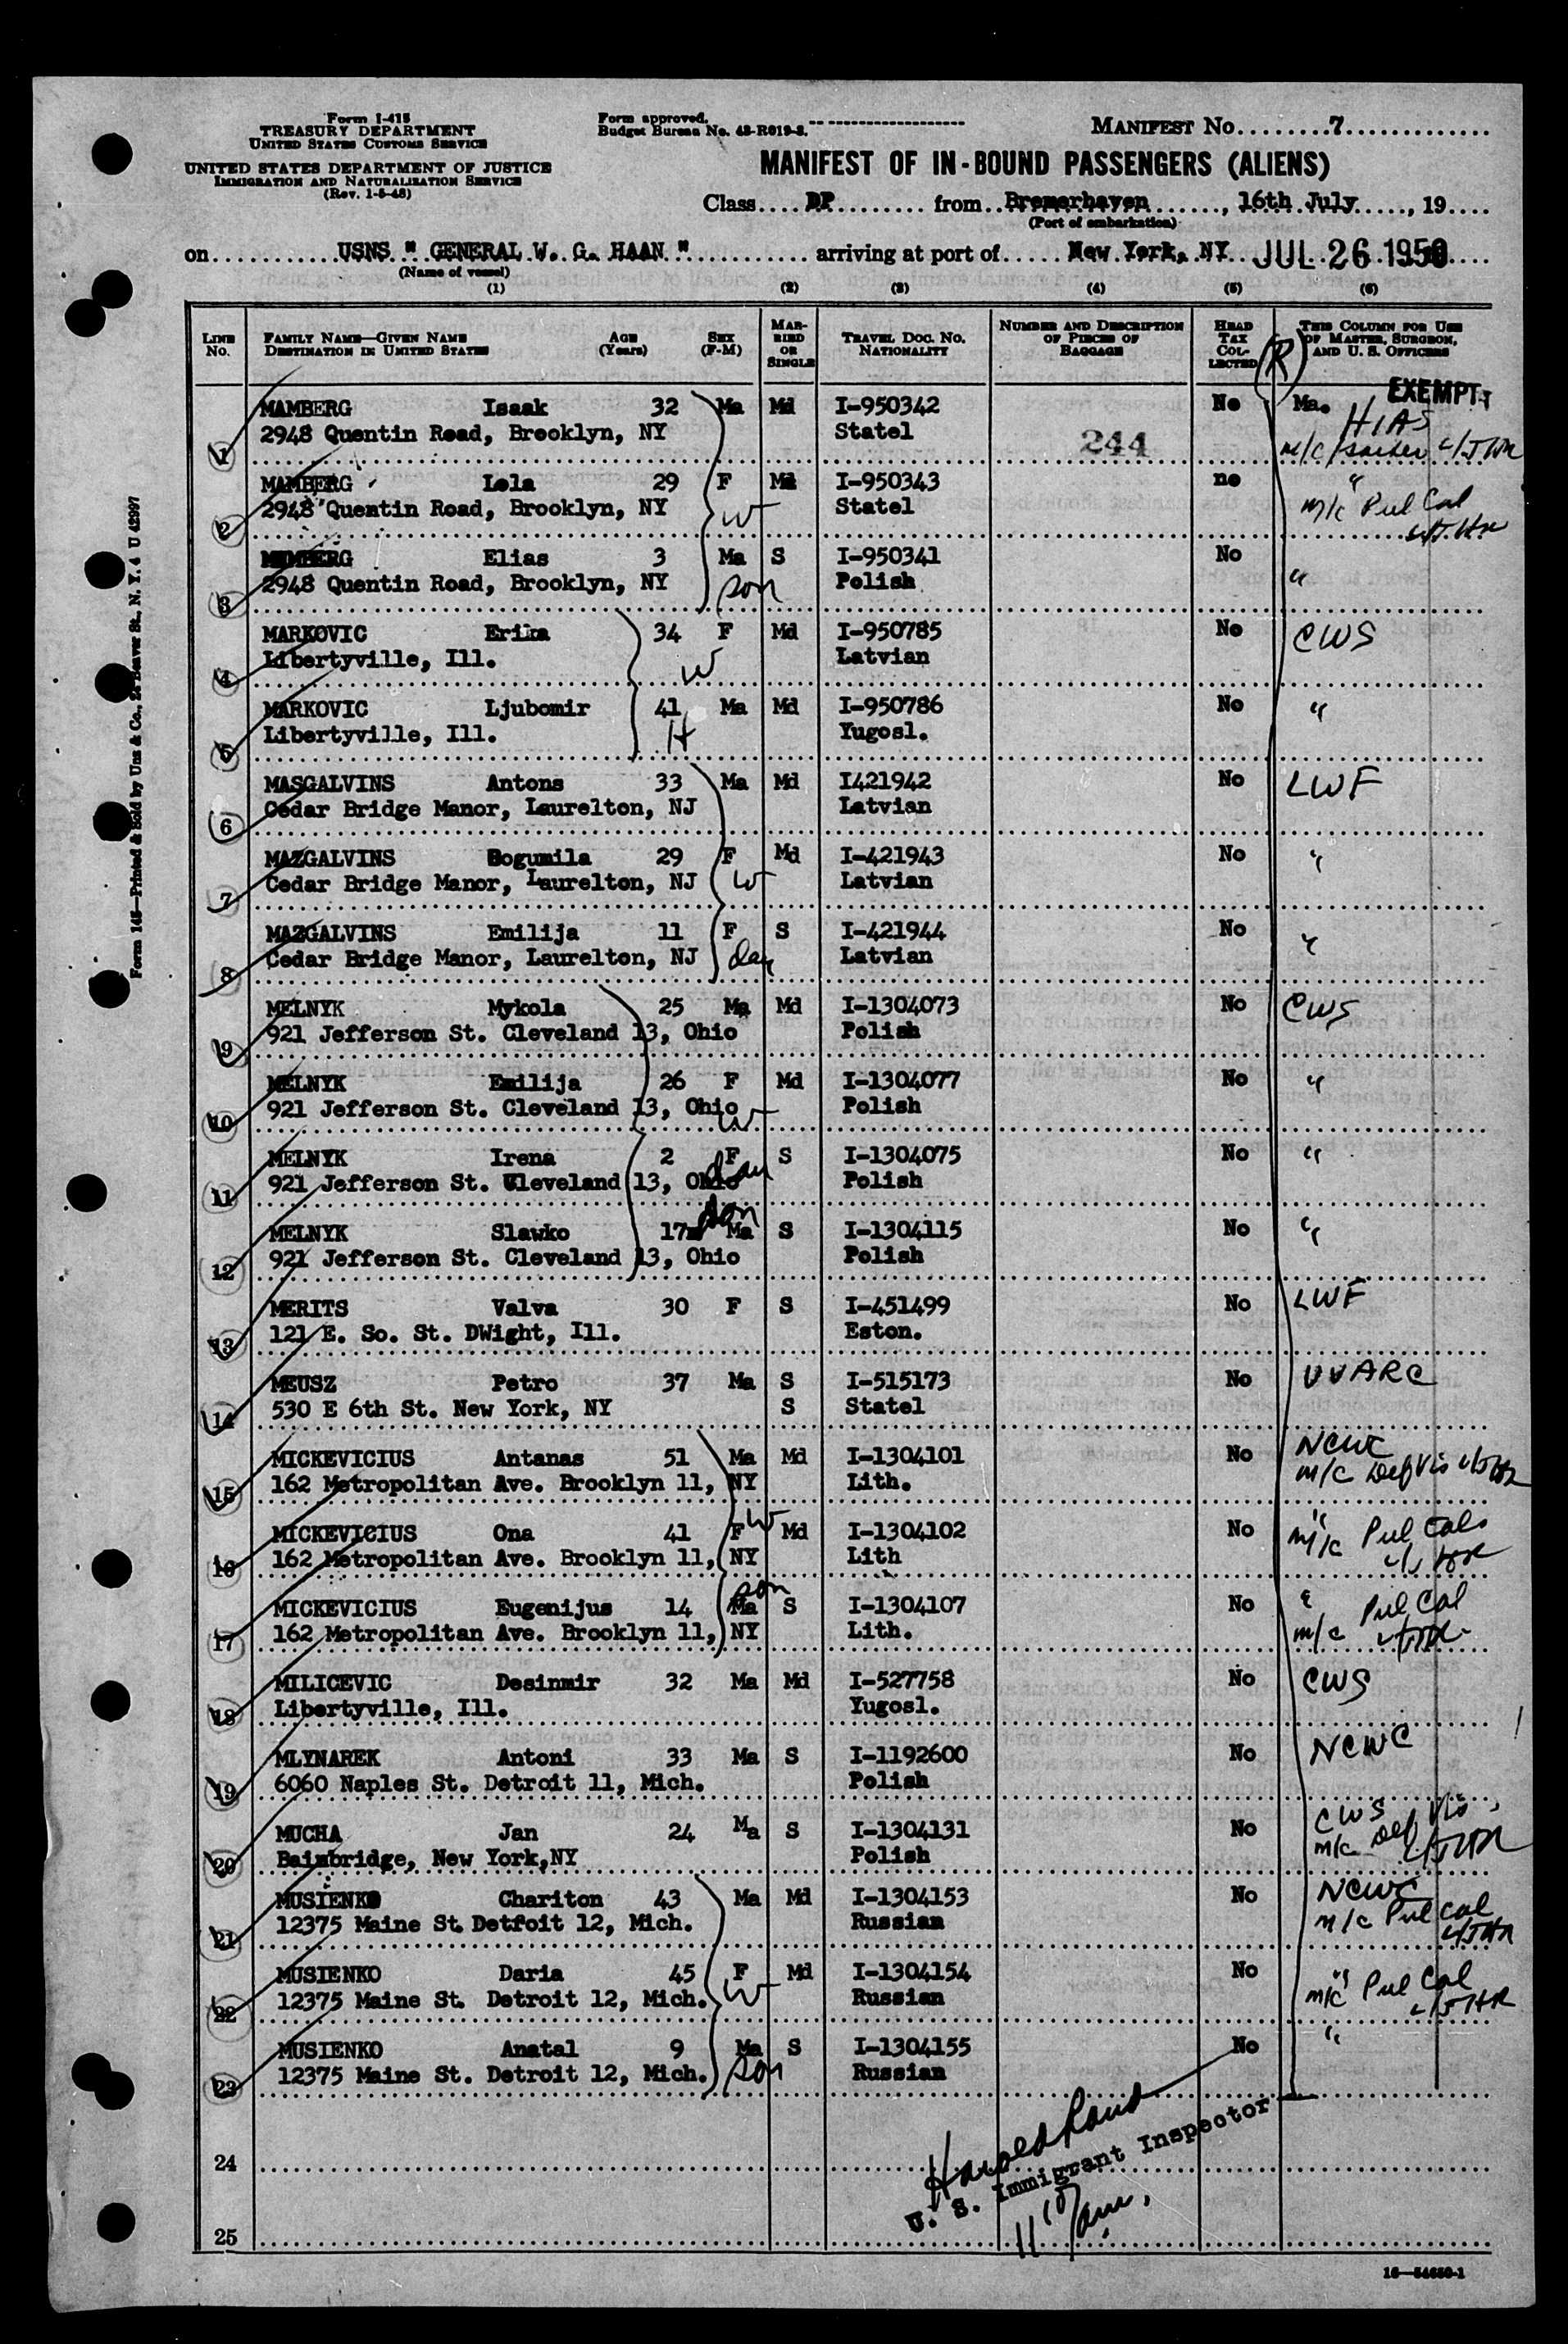 Form I-415
TREASURY DEPARTMENT
UNITED STATES CUSTOMS SERVICE
UNITED STATES DEPARTMENT OF JUSTICE
IMMIGRATION AND NATURALIZATION SERVICE
(Rev. 1-5-48)
Form approved.
Budget Bureau No. 43-R019-3.
MANIFEST No. 7
MANIFEST OF IN-BOUND PASSENGERS (ALIENS)
Class DP from Bremerhaven, 16th July, 19
(Port of embarkation)
on USNS " GENERAL W. G. HAAN " arriving at port of New York, NY JUL 26 1950
(Name of vessel)
(1) (2) (3) (4) (5) (6)
LINE No. FAMILY NAME—GIVEN NAME DESTINATION IN UNITED STATES AGE (Years) SEX (F-M) MARRIED OR SINGLE TRAVEL DOC. NO. NATIONALITY NUMBER AND DESCRIPTION OF PIECES OF BAGGAGE HEAD TAX COLLECTED THIS COLUMN FOR USE OF MASTER, SURGEON, AND U. S. OFFICERS
(R)
EXEMPT
1 MAMBERG Isaak 32 Ma Md I-950342 No Ma. HIAS
2948 Quentin Road, Brooklyn, NY Statel 244 m/c
2 MAMBERG Lola 29 F Md I-950343 no "
2948 Quentin Road, Brooklyn, NY W Statel m/c Pul Cal
3 MAMBERG Elias 3 Ma S I-950341 No "
2948 Quentin Road, Brooklyn, NY son Polish
4 MARKOVIC Erika 34 F Md I-950785 No CWS
Libertyville, Ill. W Latvian
5 MARKOVIC Ljubomir 41 Ma Md I-950786 No "
Libertyville, Ill. H Yugosl.
6 MASGALVINS Antons 33 Ma Md I421942 No LWF
Cedar Bridge Manor, Laurelton, NJ Latvian
7 MAZGALVINS Bogumila 29 F Md I-421943 No "
Cedar Bridge Manor, Laurelton, NJ W Latvian
8 MAZGALVINS Emilija 11 F S I-421944 No "
Cedar Bridge Manor, Laurelton, NJ dau Latvian
9 MELNYK Mykola 25 Ma Md I-1304073 No CWS
921 Jefferson St. Cleveland 13, Ohio Polish
10 MELNYK Emilija 26 F Md I-1304077 No "
921 Jefferson St. Cleveland 13, Ohio W Polish
11 MELNYK Irena 2 F S I-1304075 No "
921 Jefferson St. Cleveland 13, Ohio dau Polish
12 MELNYK Slawko 17m son Ma S I-1304115 No "
921 Jefferson St. Cleveland 13, Ohio Polish
13 MERITS Valva 30 F S I-451499 No LWF
121 E. So. St. DWight, Ill. Eston.
14 MEUSZ Petro 37 Ma S I-515173 No UUARC
530 E 6th St. New York, NY S Statel
15 MICKEVICIUS Antanas 51 Ma Md I-1304101 No NCWC
162 Metropolitan Ave. Brooklyn 11, NY Lith. m/c Def Vis
16 MICKEVICIUS Ona 41 F W Md I-1304102 No "
162 Metropolitan Ave. Brooklyn 11, NY Lith m/c Pul Cals
17 MICKEVICIUS Eugenijus 14 Ma son S I-1304107 No " Pul Cal
162 Metropolitan Ave. Brooklyn 11, NY Lith. m/c
18 MILICEVIC Desinmir 32 Ma Md I-527758 No CWS
Libertyville, Ill. Yugosl.
19 MLYNAREK Antoni 33 Ma S I-1192600 No NCWC
6060 Naples St. Detroit 11, Mich. Polish
20 MUCHA Jan 24 Ma S I-1304131 No CWS
Bainbridge, New York,NY Polish m/c Def Vis
21 MUSIENKO Chariton 43 Ma Md I-1304153 No NCWC
12375 Maine St. Detfoit 12, Mich. Russian m/c Pul Cal
22 MUSIENKO Daria 45 F Md I-1304154 No "
12375 Maine St. Detroit 12, Mich. W Russian m/c Pul Cal
23 MUSIENKO Anatal 9 Ma S I-1304155 No "
12375 Maine St. Detroit 12, Mich. son Russian
24
Harold
U. S. Immigrant Inspector
25
11 10/am.
16—54650-1
Form 145—Printed & Sold by Unz & Co., 24 Beaver St., N. Y. 4 U 42997